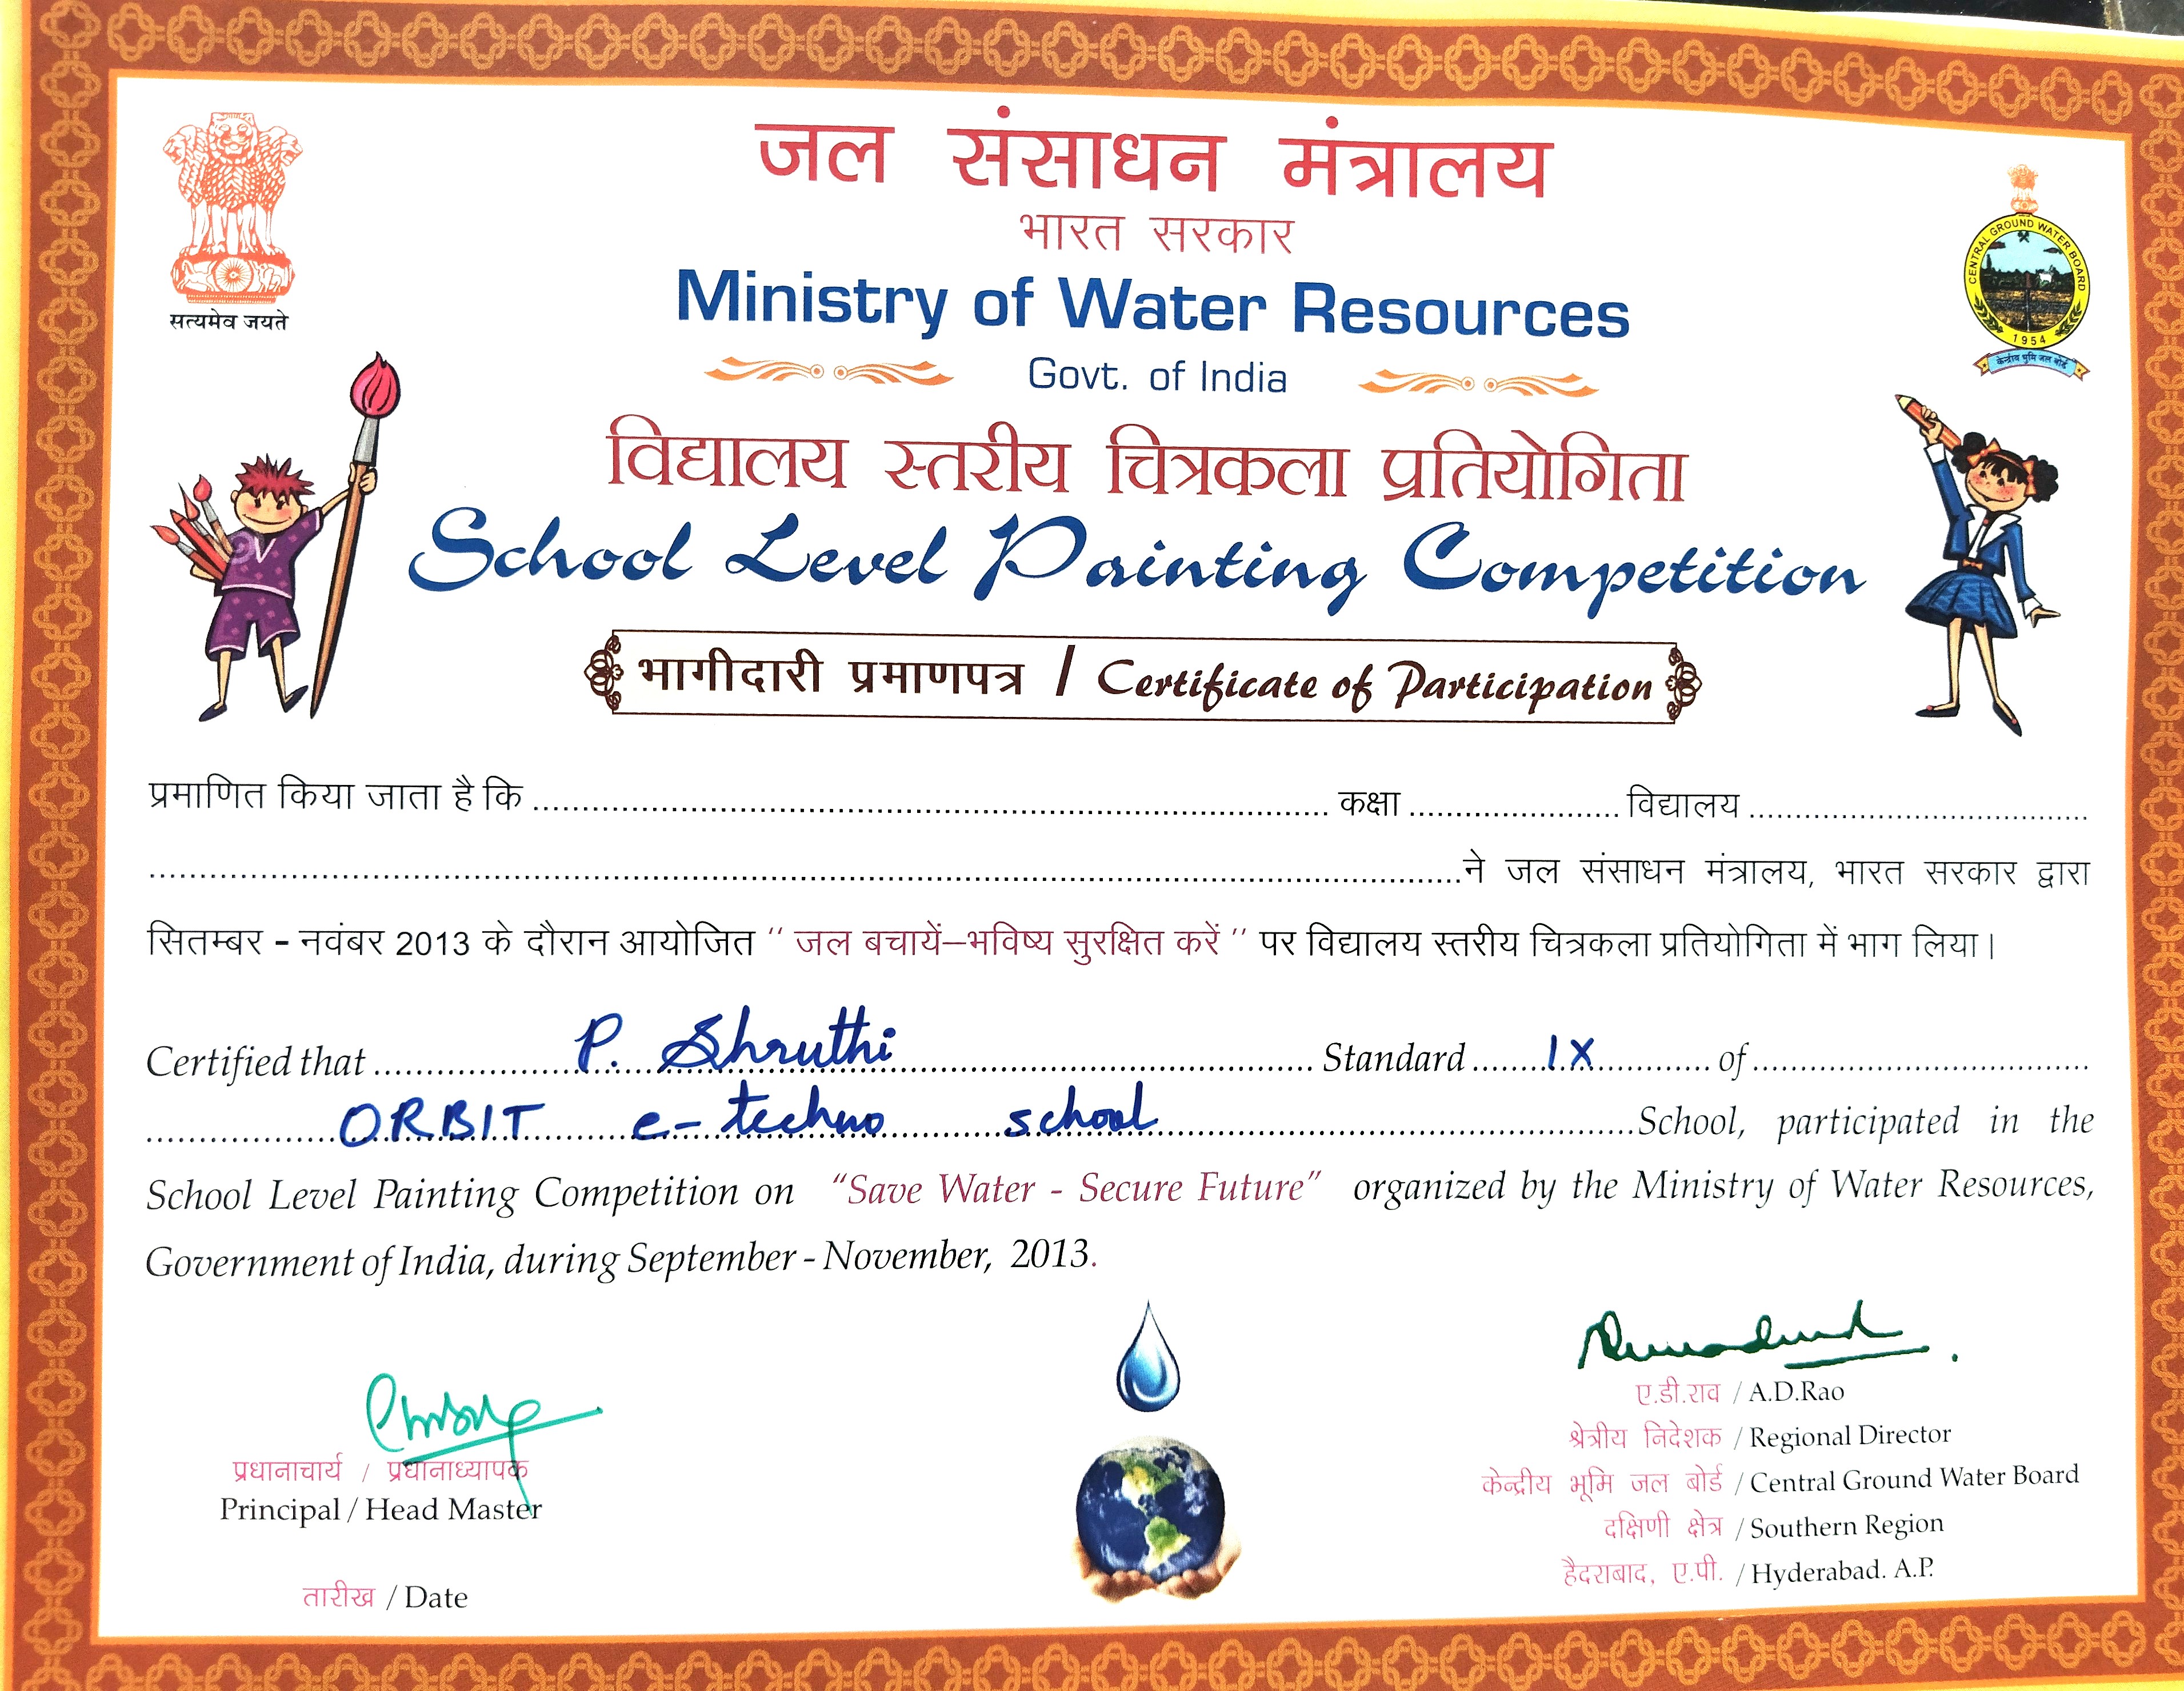 जल संसाधन मंत्रालय
भारत सरकार
Ministry of Water Resources
Govt. of India
सत्यमेव जयते
CENTRAL GROUND WATER BOARD
1954
केन्द्रीय भूमि जल बोर्ड
विद्यालय स्तरीय चित्रकला प्रतियोगिता
School Level Painting Competition
भागीदारी प्रमाणपत्र / Certificate of Participation
प्रमाणित किया जाता है कि ........................ कक्षा ............ विद्यालय ............
........................ने जल संसाधन मंत्रालय, भारत सरकार द्वारा
सितम्बर - नवंबर 2013 के दौरान आयोजित '' जल बचायें–भविष्य सुरक्षित करें '' पर विद्यालय स्तरीय चित्रकला प्रतियोगिता में भाग लिया।
Certified that P. Shruthi Standard IX of
ORBIT e-techno school School, participated in the
School Level Painting Competition on "Save Water - Secure Future" organized by the Ministry of Water Resources,
Government of India, during September - November, 2013.
प्रधानाचार्य / प्रधानाध्यापक
Principal / Head Master
तारीख / Date
ए.डी.राव / A.D.Rao
श्रेत्रीय निदेशक / Regional Director
केन्द्रीय भूमि जल बोर्ड / Central Ground Water Board
दक्षिणी क्षेत्र / Southern Region
हैदराबाद, ए.पी. / Hyderabad. A.P.